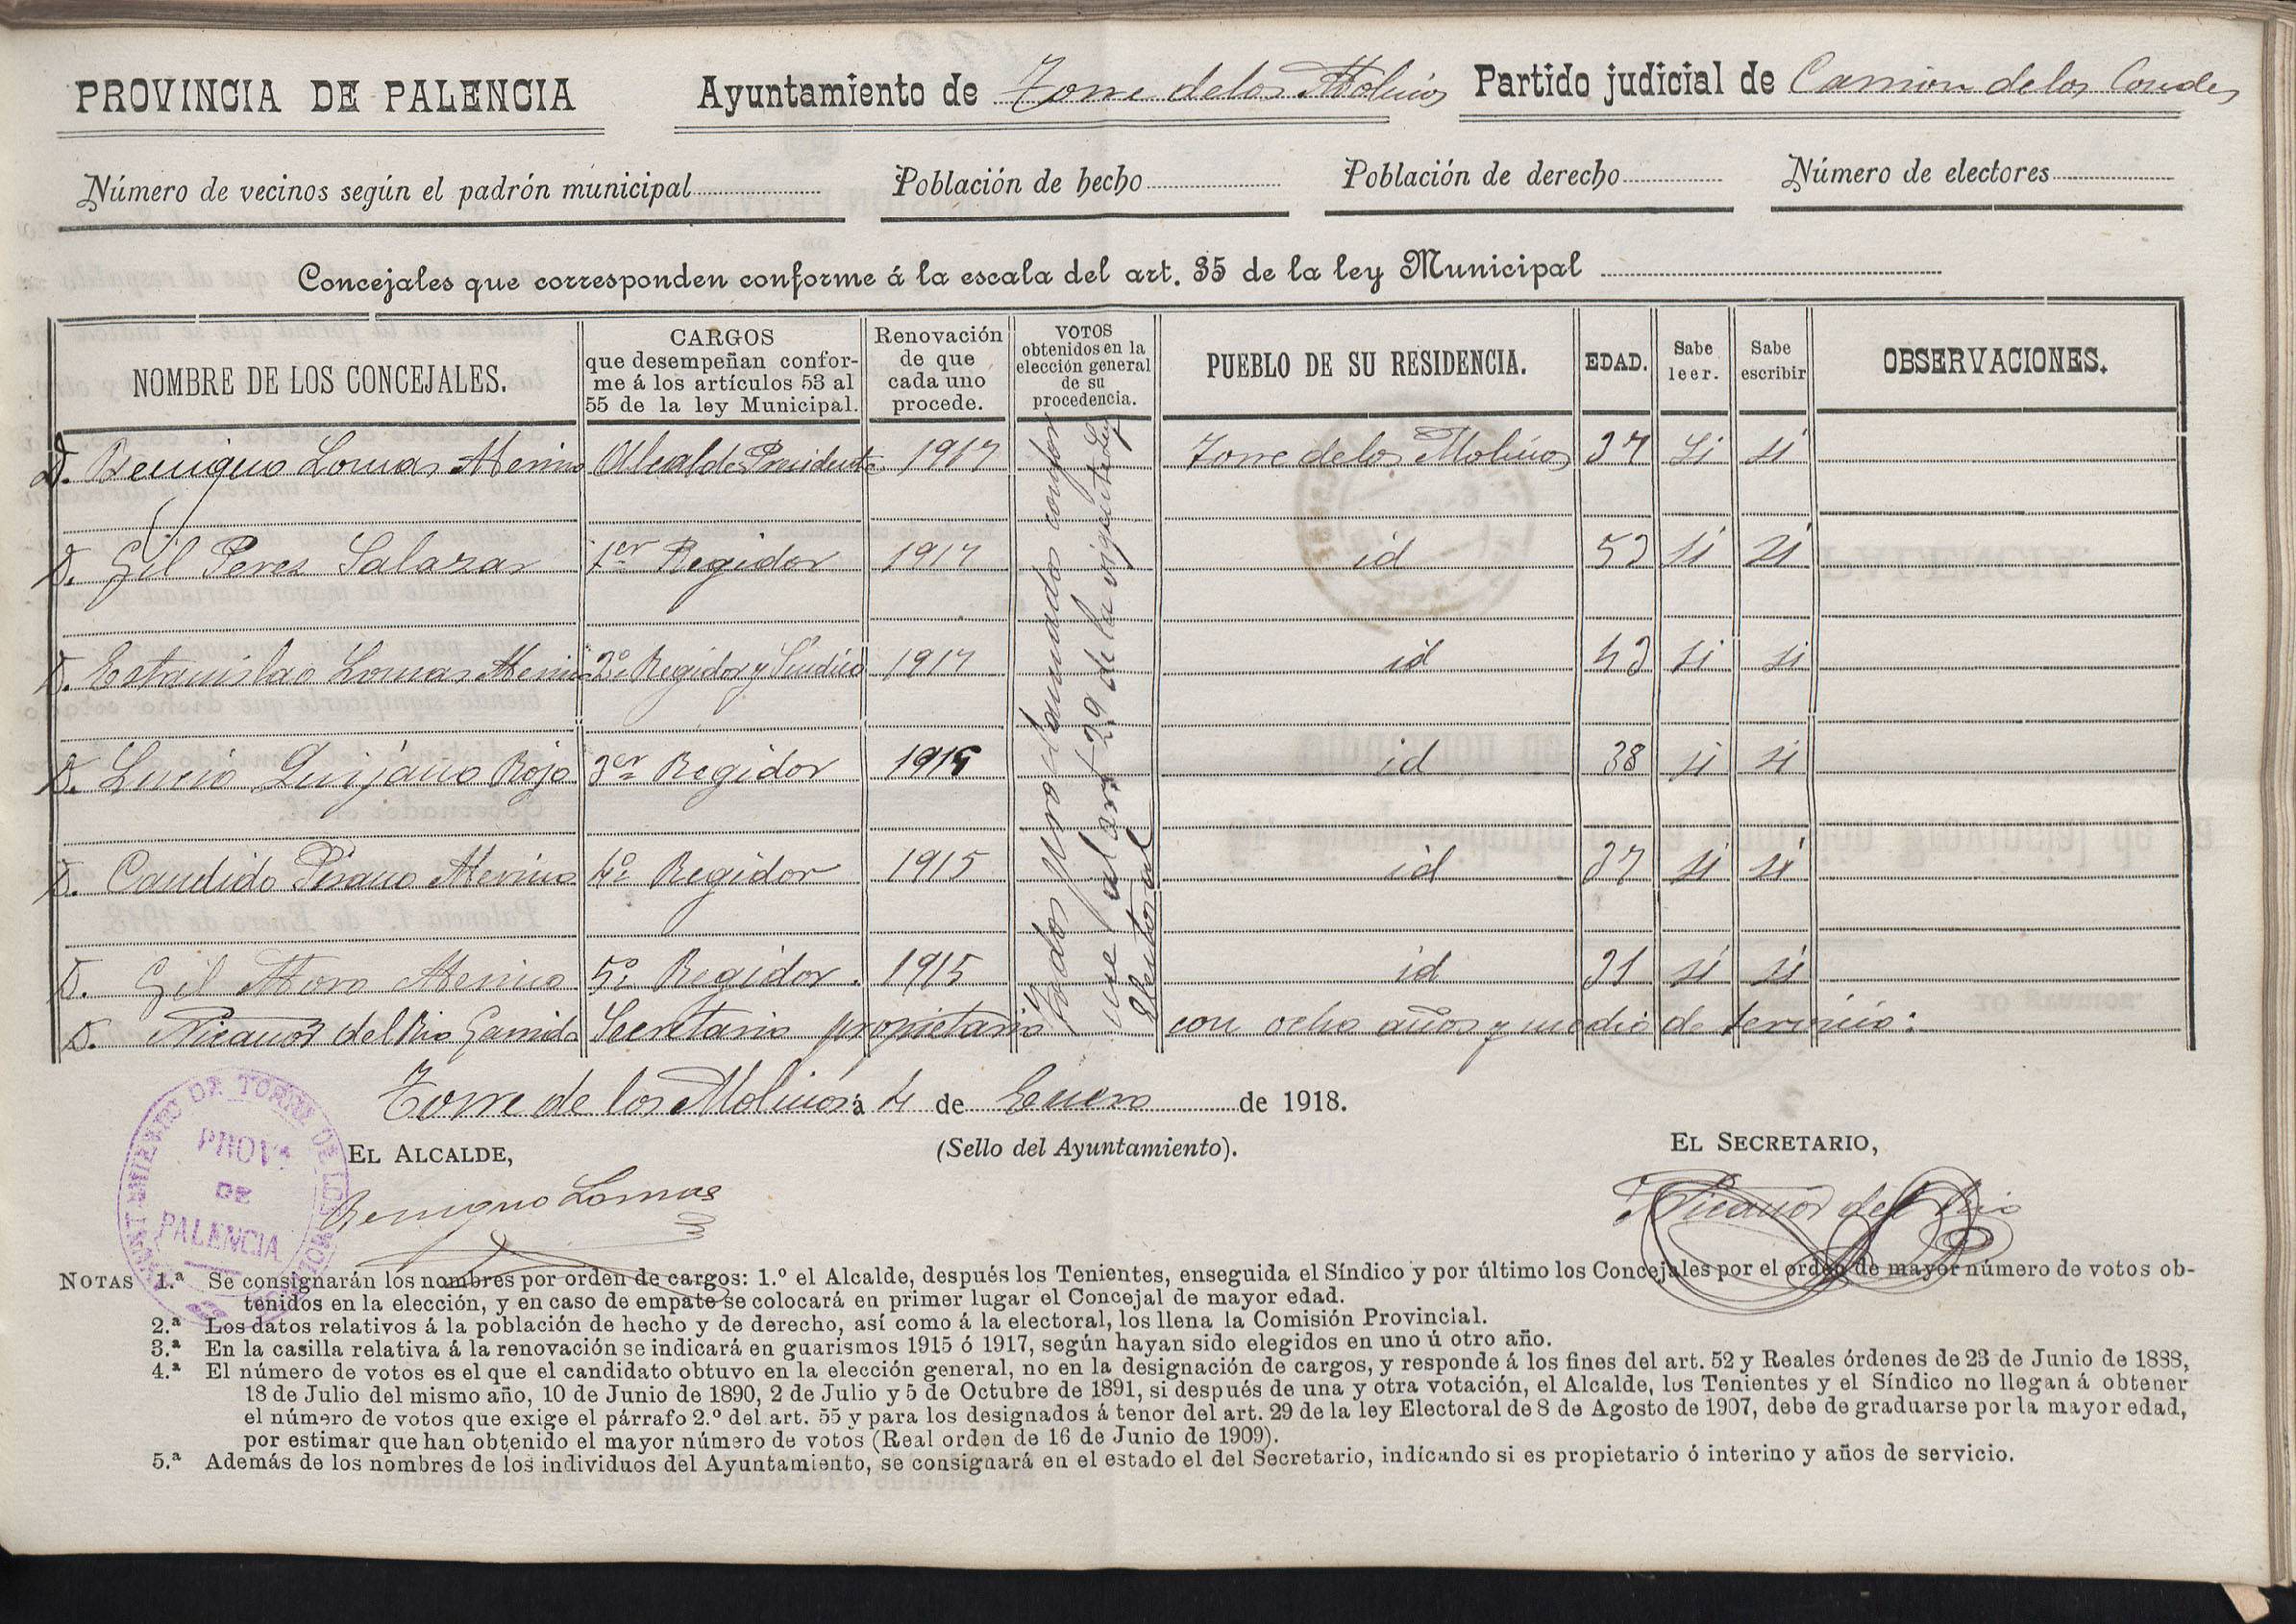 PROVINCIA DE PALENCIA Ayuntamiento de Torre de los Molinos Partido judicial de Carrion de los Condes
Número de vecinos según el padrón municipal Población de hecho Población de derecho Número de electores
Concejales que corresponden conforme á la escala del art. 35 de la ley Municipal
NOMBRE DE LOS CONCEJALES. CARGOS que desempeñan conforme á los artículos 53 al 55 de la ley Municipal. Renovación de que cada uno procede. VOTOS obtenidos en la elección general de su procedencia. PUEBLO DE SU RESIDENCIA. EDAD. Sabe leer. Sabe escribir OBSERVACIONES.
D. Benigno Lomas Merino Alcalde Presidente 1917 Torre de los Molinos 37 si si
D. Gil Perez Salazar 1er Regidor 1917 id 53 si si
D. Estanislao Lomas Merino 2º Regidor y Sindico 1917 id 43 si si
D. Lucio Quijano Rojo 3er Regidor 1915 id 38 si si
D. Candido Merino 4º Regidor 1915 id 37 si si
D. Gil Moro Merino 5º Regidor. 1915 id 31 si si
D. Nicanor del Rio Garrido Secretario propietario con ocho años y medio de servicio.
Todos proclamados conforme al art 29 de la vigente ley Electoral
Torre de los Molinos á 4 de Enero de 1918.
EL ALCALDE, (Sello del Ayuntamiento). EL SECRETARIO,
Benigno Lomas Nicanor del Rio
AYUNTAMIENTO DE TORRE DE LOS MOLINOS
PROVª
DE
PALENCIA
NOTAS 1.ª Se consignarán los nombres por orden de cargos: 1.º el Alcalde, después los Tenientes, enseguida el Síndico y por último los Concejales por el orden de mayor número de votos ob-
tenidos en la elección, y en caso de empate se colocará en primer lugar el Concejal de mayor edad.
2.ª Los datos relativos á la población de hecho y de derecho, así como á la electoral, los llena la Comisión Provincial.
3.ª En la casilla relativa á la renovación se indicará en guarismos 1915 ó 1917, según hayan sido elegidos en uno ú otro año.
4.ª El número de votos es el que el candidato obtuvo en la elección general, no en la designación de cargos, y responde á los fines del art. 52 y Reales órdenes de 23 de Junio de 1888,
18 de Julio del mismo año, 10 de Junio de 1890, 2 de Julio y 5 de Octubre de 1891, si después de una y otra votación, el Alcalde, los Tenientes y el Síndico no llegan á obtener
el número de votos que exige el párrafo 2.º del art. 55 y para los designados á tenor del art. 29 de la ley Electoral de 8 de Agosto de 1907, debe de graduarse por la mayor edad,
por estimar que han obtenido el mayor número de votos (Real orden de 16 de Junio de 1909).
5.ª Además de los nombres de los individuos del Ayuntamiento, se consignará en el estado el del Secretario, indicando si es propietario ó interino y años de servicio.